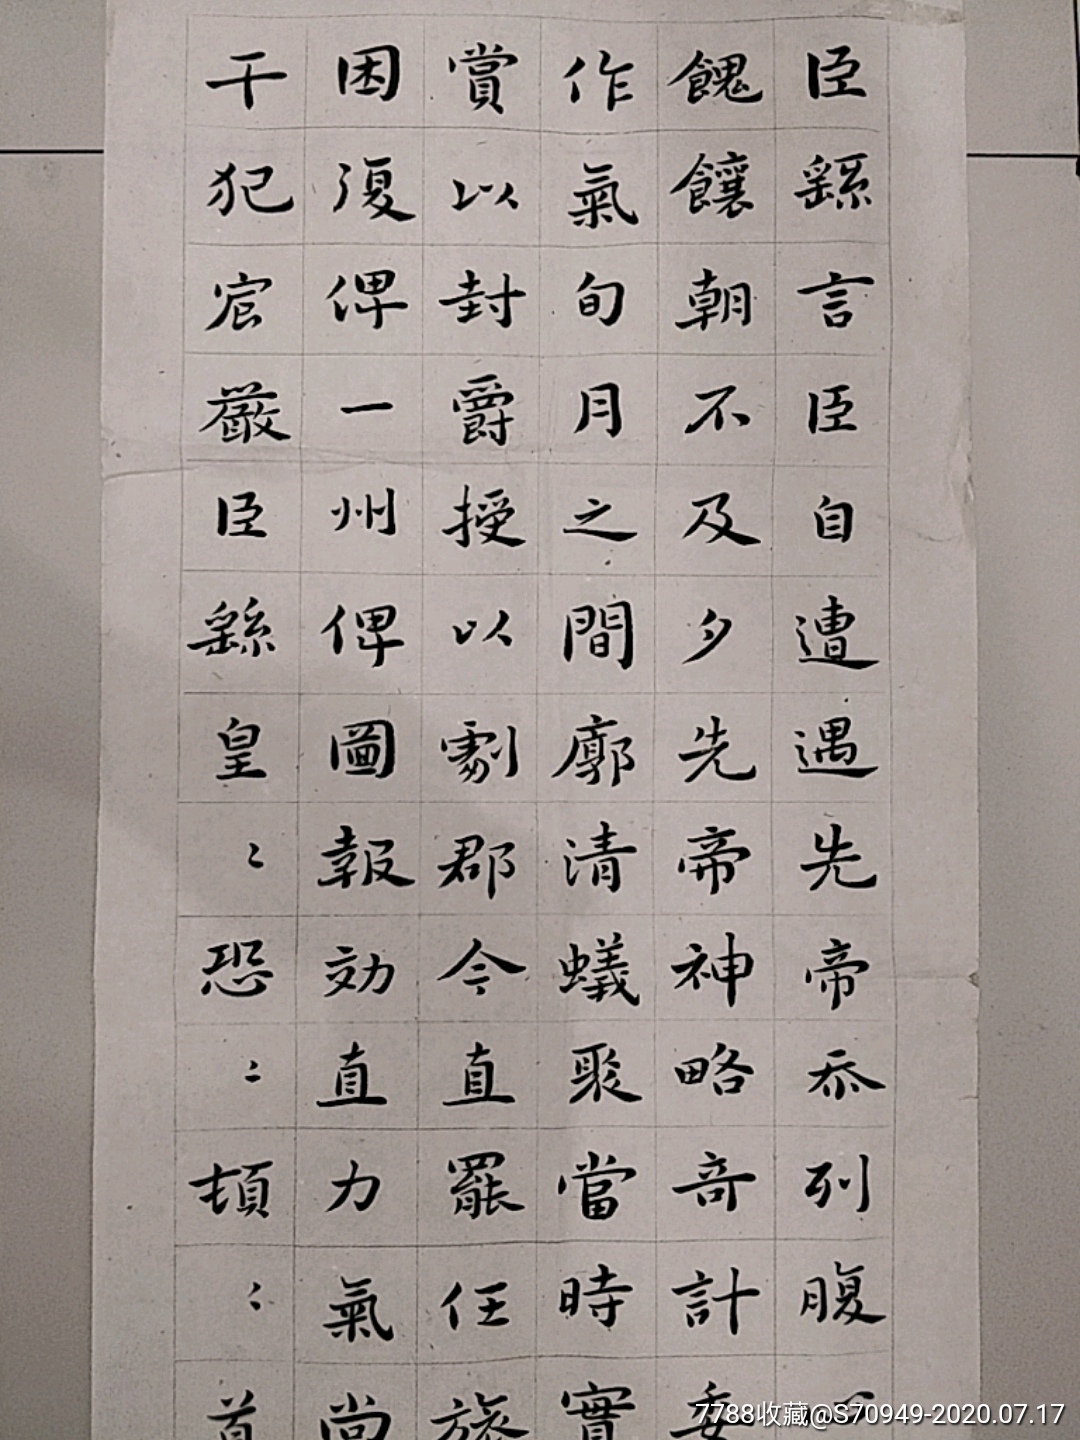 臣繇言臣自遭遇先帝忝列腹
餽饟朝不及夕先帝神略奇計委
作氣旬月之間廓清蟻聚當時實
賞以封爵授以劇郡今直罷任旅
困復俾一州俾圖報効直力氣尚
干犯宸嚴臣繇皇〻恐〻頓〻首
7788收藏@S70949-2020.07.17